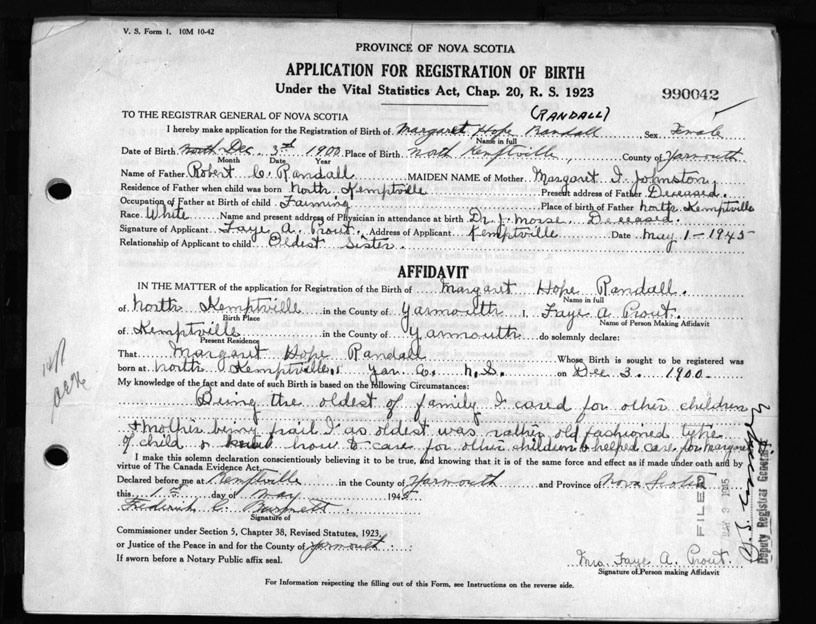 V. S. Form 1. 10M 10-42
PROVINCE OF NOVA SCOTIA
APPLICATION FOR REGISTRATION OF BIRTH
Under the Vital Statistics Act, Chap. 20, R. S. 1923
990042
(RANDALL)
TO THE REGISTRAR GENERAL OF NOVA SCOTIA
I hereby make application for the Registration of Birth of Margaret Hope Randall Sex Female
Name in full
Date of Birth Dec. 3rd 1900 Place of Birth North Kemptville, County of Yarmouth
Month Date Year
Name of Father Robert C. Randall MAIDEN NAME of Mother Margaret I. Johnston
Residence of Father when child was born North Kemptville Present address of Father Deceased.
Occupation of Father at Birth of child Farming Place of birth of Father North Kemptville
Race White Name and present address of Physician in attendance at birth Dr. J. Morse. Deceased.
Signature of Applicant Faye A. Prout. Address of Applicant Kemptville Date May 1-1945
Relationship of Applicant to child Oldest Sister.
AFFIDAVIT
IN THE MATTER of the application for Registration of the Birth of Margaret Hope Randall.
Name in full
of North Kemptville in the County of Yarmouth I, Faye A. Prout.
Birth Place Name of Person Making Affidavit
of Kemptville in the County of Yarmouth do solemnly declare:
Present Residence
That Margaret Hope Randall Whose Birth is sought to be registered was
born at North Kemptville, Yar. Co. N.S. on Dec 3. 1900.
My knowledge of the fact and date of such Birth is based on the following Circumstances:
Being the oldest of family I cared for other children
& mother being frail I as oldest was rather old fashioned type
of child & how to care for other children & helped care for Margaret
I make this solemn declaration conscientiously believing it to be true, and knowing that it is of the same force and effect as if made under oath and by
virtue of The Canada Evidence Act.
Declared before me at Kemptville in the County of Yarmouth and Province of Nova Scotia
this 1st day of May 1945
Frederick C. Burnett
Signature of
Commissioner under Section 5, Chapter 38, Revised Statutes, 1923,
or Justice of the Peace in and for the County of Yarmouth
If sworn before a Notary Public affix seal.
Mrs Faye A. Prout.
Signature of Person making Affidavit
For Information respecting the filling out of this Form, see Instructions on the reverse side.
FILED
MAY 3 1945
Deputy Registrar General